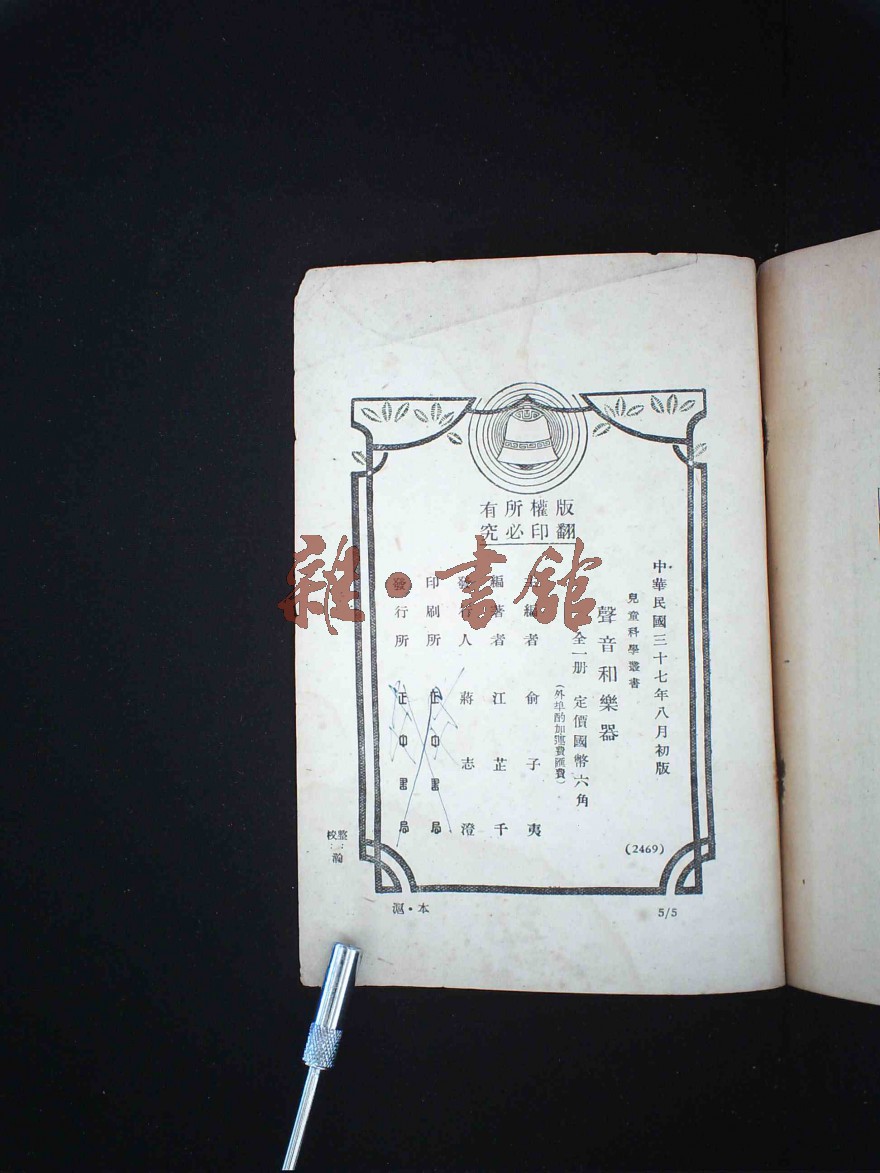 版權所有
翻印必究
中華民國三十七年八月初版
兒童科學叢書
聲音和樂器
全一册　定價國幣六角
(外埠酌加運費匯費)
主編者　俞子夷
編著者　江芷千
發行人　蔣志澄
印刷所　正中書局
發行所　正中書局
(2469)
整
校：瀚
滬・本
5/5
雜・書館